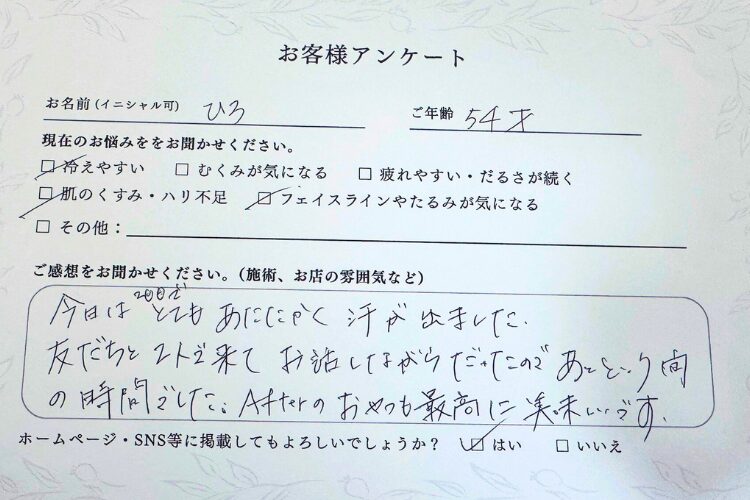 お客様アンケート
お名前(イニシャル可) ひろ ご年齢 54才
現在のお悩みををお聞かせください。
冷えやすい □ むくみが気になる □ 疲れやすい・だるさが続く
肌のくすみ・ハリ不足 フェイスラインやたるみが気になる
□ その他：
ご感想をお聞かせください。(施術、お店の雰囲気など)
2回目で
今日はとてもあたたかく汗が出ました。
友だちと2人で来てお話しながらだったのであっという間
の時間でした。Afterのおやつも最高に美味しいです。
ホームページ・SNS等に掲載してもよろしいでしょうか？ はい □ いいえ